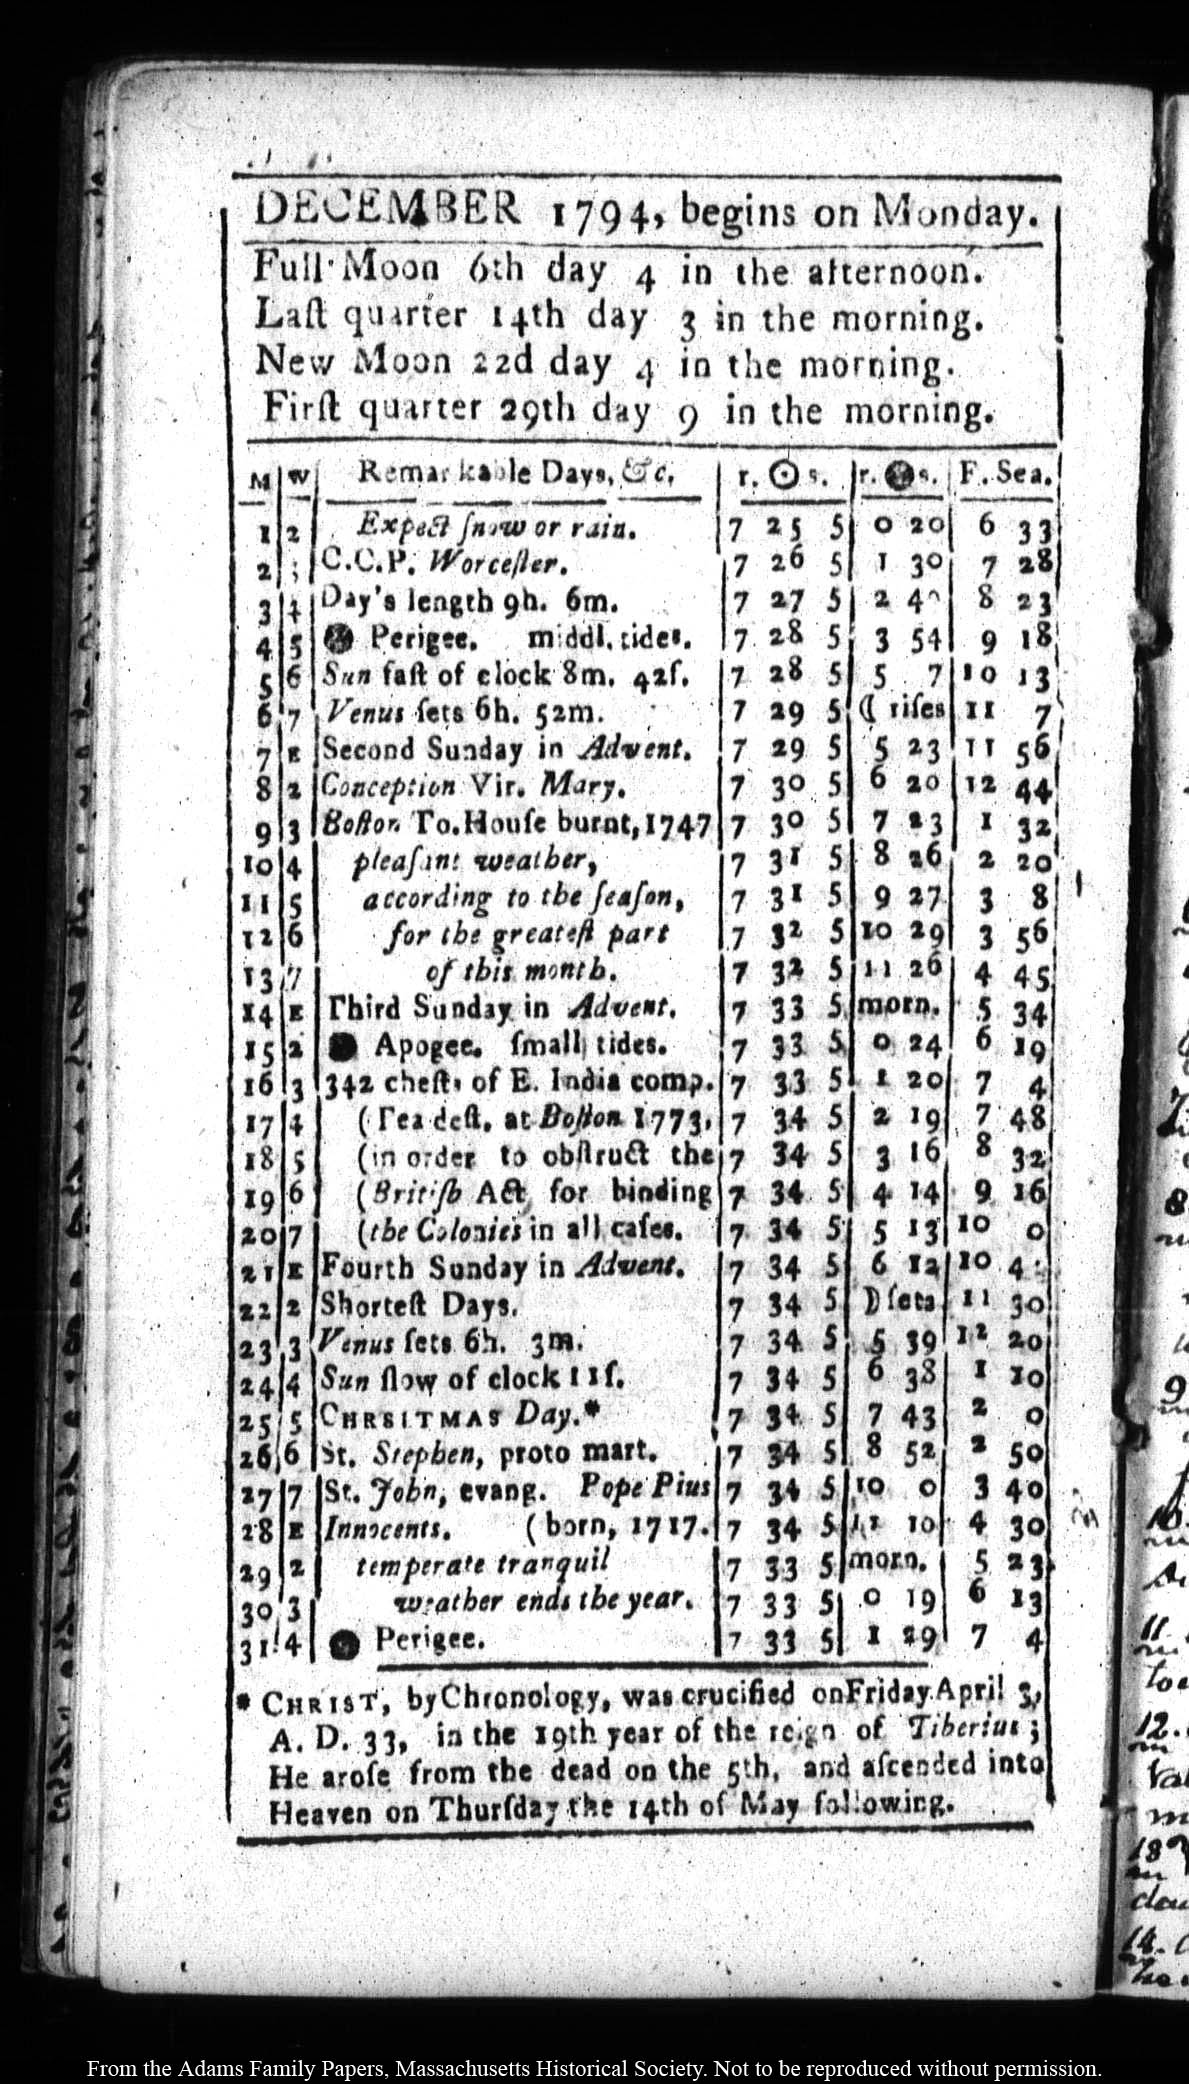 DECEMBER 1794, begins on Monday.
Full Moon 6th day 4 in the afternoon.
Laſt quarter 14th day 3 in the morning.
New Moon 22d day 4 in the morning.
Firſt quarter 29th day 9 in the morning.
M W Remarkable Days, &c. r. ☉ s. r. ● s. F. Sea.
1 2 Expect ſnow or rain. 7 25 5 0 20 6 33
2 3 C.C.P. Worceſter. 7 26 5 1 30 7 28
3 4 Day's length 9h. 6m. 7 27 5 2 40 8 23
4 5 ● Perigee. middl. tides. 7 28 5 3 54 9 18
5 6 Sun faſt of clock 8m. 42ſ. 7 28 5 5 7 10 13
6 7 Venus ſets 6h. 52m. 7 29 5 ☾ riſes 11 7
7 E Second Sunday in Advent. 7 29 5 5 23 11 56
8 2 Conception Vir. Mary. 7 30 5 6 20 12 44
9 3 Boſton To. Houſe burnt, 1747 7 30 5 7 23 1 32
10 4 pleaſant weather, 7 31 5 8 26 2 20
11 5 according to the ſeaſon, 7 31 5 9 27 3 8
12 6 for the greateſt part 7 32 5 10 29 3 56
13 7 of this month. 7 32 5 11 26 4 45
14 E Third Sunday in Advent. 7 33 5 morn. 5 34
15 2 ● Apogee. ſmall tides. 7 33 5 0 24 6 19
16 3 342 cheſts of E. India comp. 7 33 5 1 20 7 4
17 4 (Tea deſt. at Boſton 1773, 7 34 5 2 19 7 48
18 5 (in order to obſtruct the 7 34 5 3 16 8 32
19 6 (Britiſh Act for binding 7 34 5 4 14 9 16
20 7 (the Colonies in all caſes. 7 34 5 5 13 10 0
21 E Fourth Sunday in Advent. 7 34 5 6 12 10 4
22 2 Shorteſt Days. 7 34 5 ☽ ſets 11 30
23 3 Venus ſets 6h. 3m. 7 34 5 5 39 12 20
24 4 Sun ſlow of clock 11ſ. 7 34 5 6 38 1 10
25 5 CHRSITMAS Day.* 7 34 5 7 43 2 0
26 6 St. Stephen, proto mart. 7 34 5 8 52 2 50
27 7 St. John, evang. Pope Pius 7 34 5 10 0 3 40
28 E Innocents. (born, 1717. 7 34 5 11 10 4 30
29 2 temperate tranquil 7 33 5 morn. 5 23
30 3 weather ends the year. 7 33 5 0 19 6 13
31 4 ● Perigee. 7 33 5 1 29 7 4
* CHRIST, by Chronology, was crucified on Friday April 3,
A. D. 33, in the 19th year of the reign of Tiberius;
He aroſe from the dead on the 5th, and aſcended into
Heaven on Thurſday the 14th of May following.
From the Adams Family Papers, Massachusetts Historical Society. Not to be reproduced without permission.